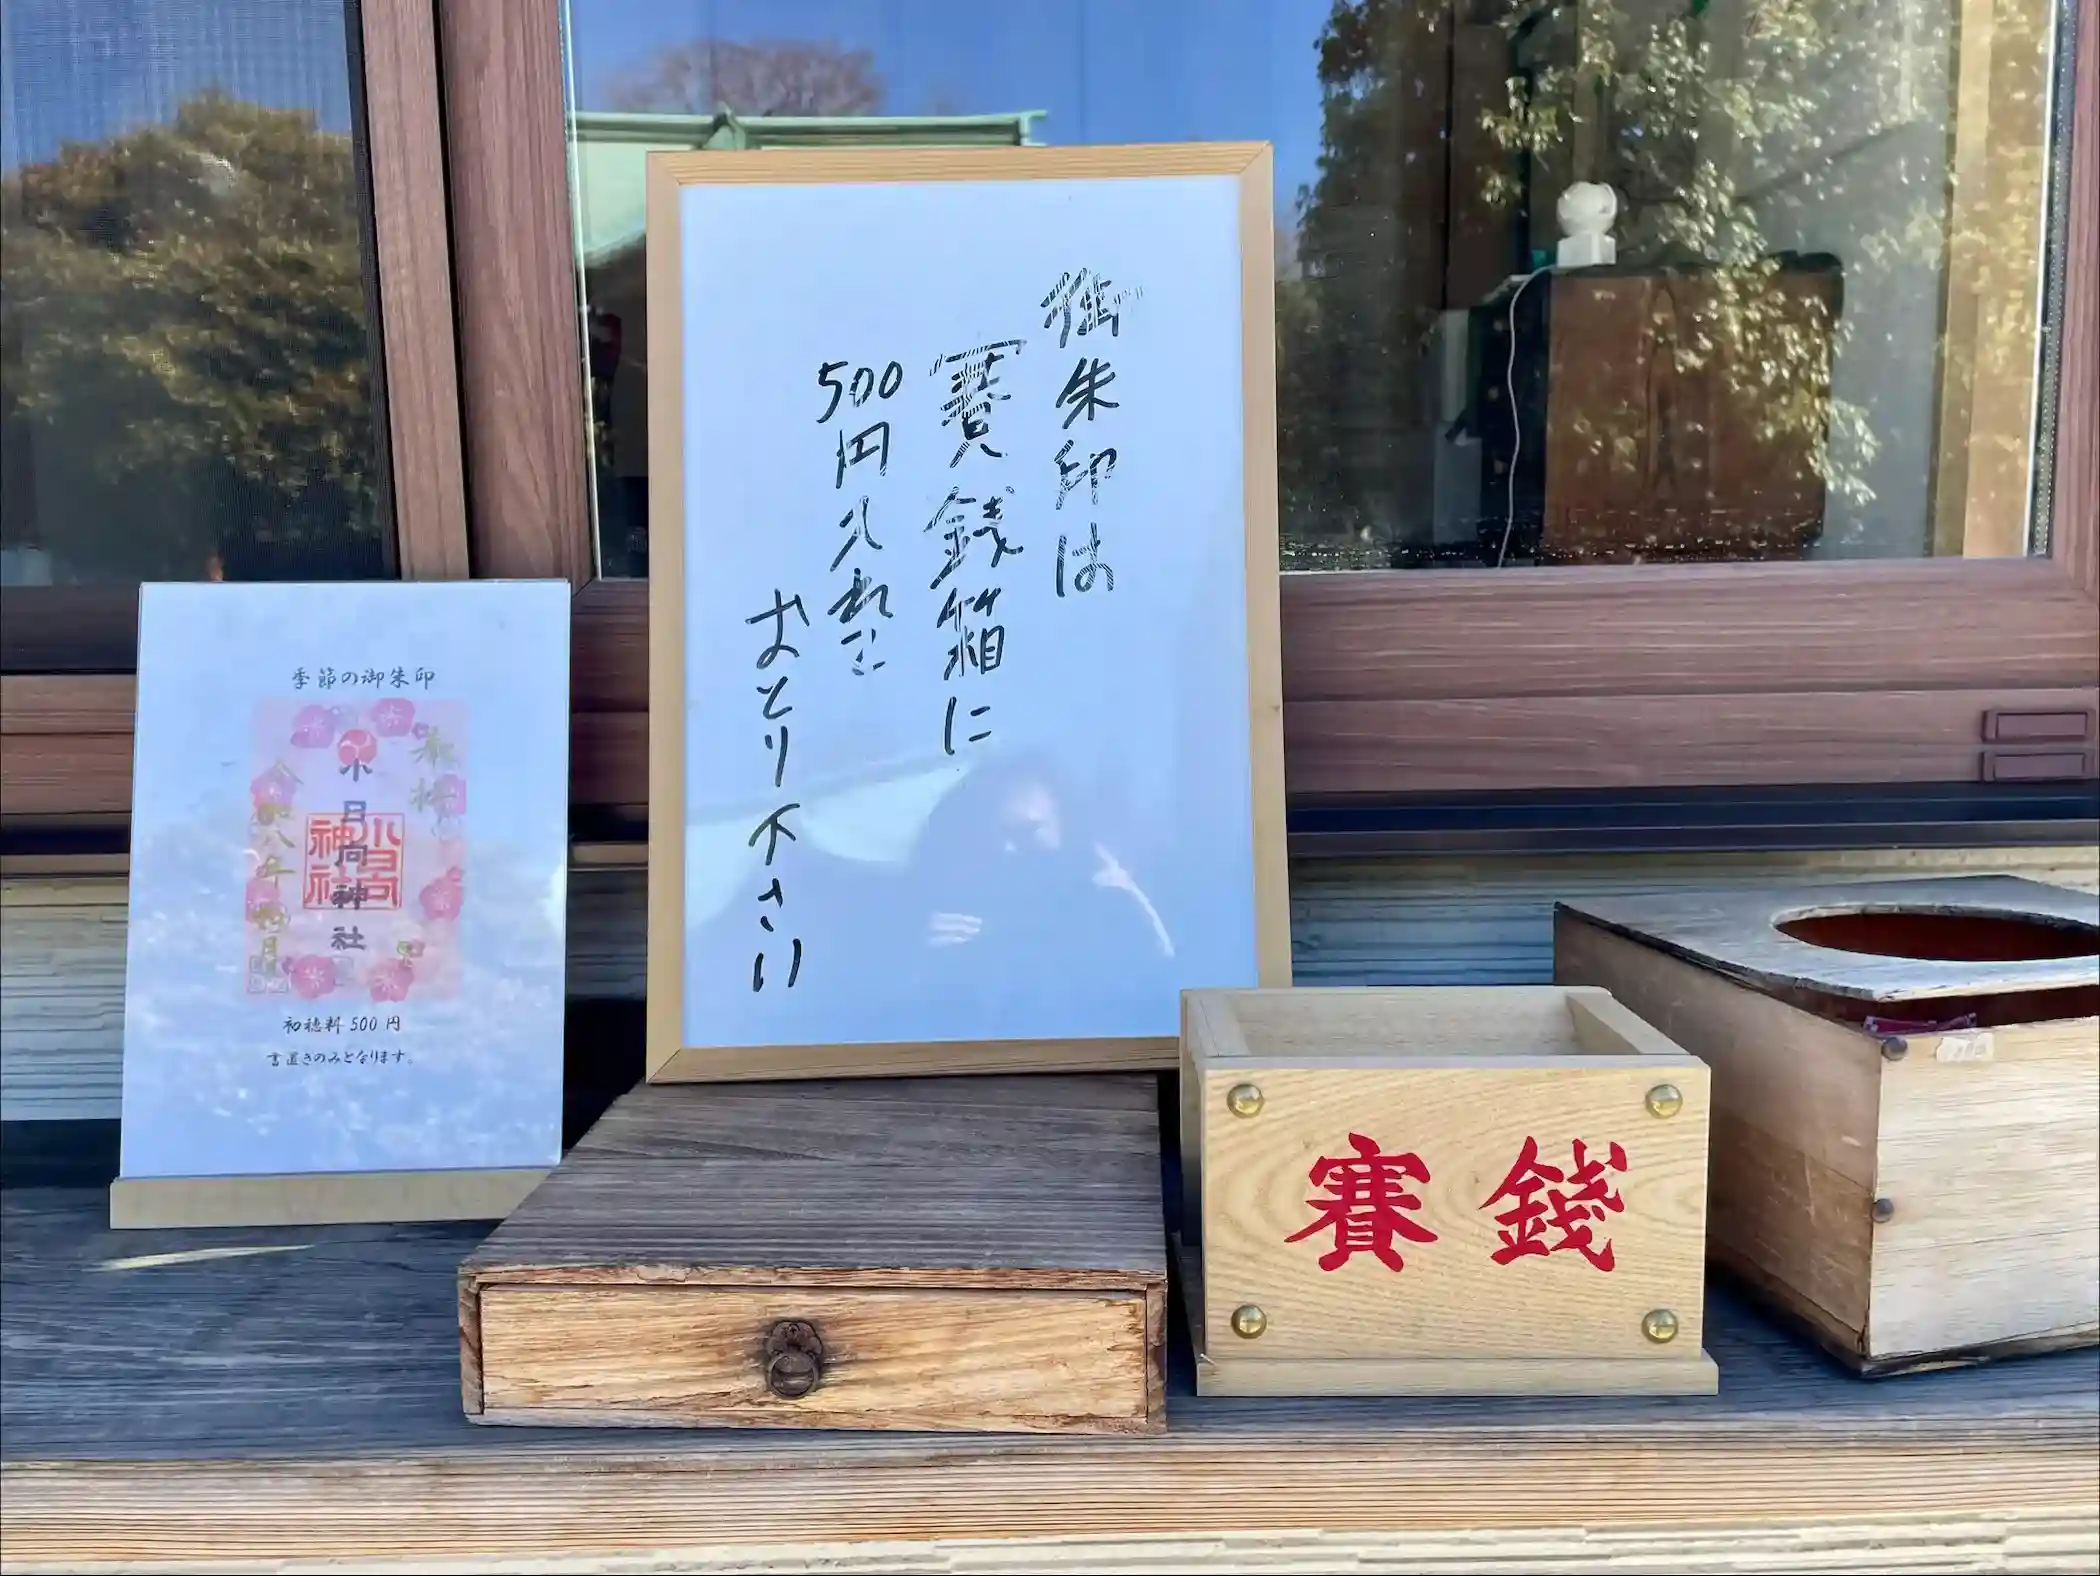 御朱印は
賽銭箱に
500円入れて
おとり下さい
季節の御朱印
小日向神社
小日向
神社
初穂料 500 円
書置きのみとなります。
賽銭